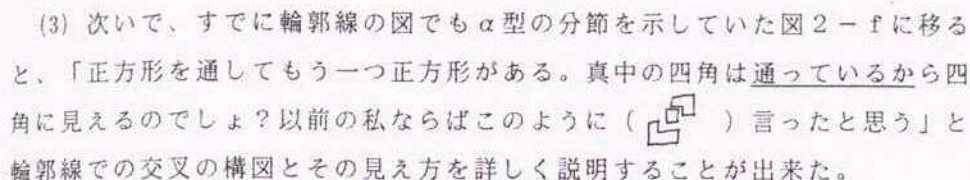 (3) 次いで、すでに輪郭線の図でもα型の分節を示していた図2－fに移る
と、「正方形を通してもう一つ正方形がある。真中の四角は通っているから四
角に見えるのでしょ？以前の私ならばこのように（　）言ったと思う」と
輪郭線での交叉の構図とその見え方を詳しく説明することが出来た。